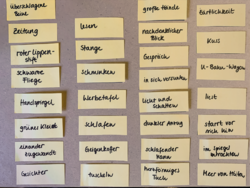 übernächtigte
Beine
Zeitung
roter Lippen-
stift
schwarze
Fliege
Handspiegel
grünes Kleid
einander
zugewandt
Gesichter
Lesen
Stange
Schminken
Werbetafel
schlafen
Geigenkoffer
tuscheln
große Hände
nachdenklicher
Blick
Gespräch
in sich versunken
Licht und
Schatten
dunkler Anzug
schlafender
Mann
herzförmiges
Tuch
Zärtlichkeit
Kuss
U-Bahn-Wagen
Hut
starrt vor
sich hin
im Spiegel
betrachten
Meer von Hüten